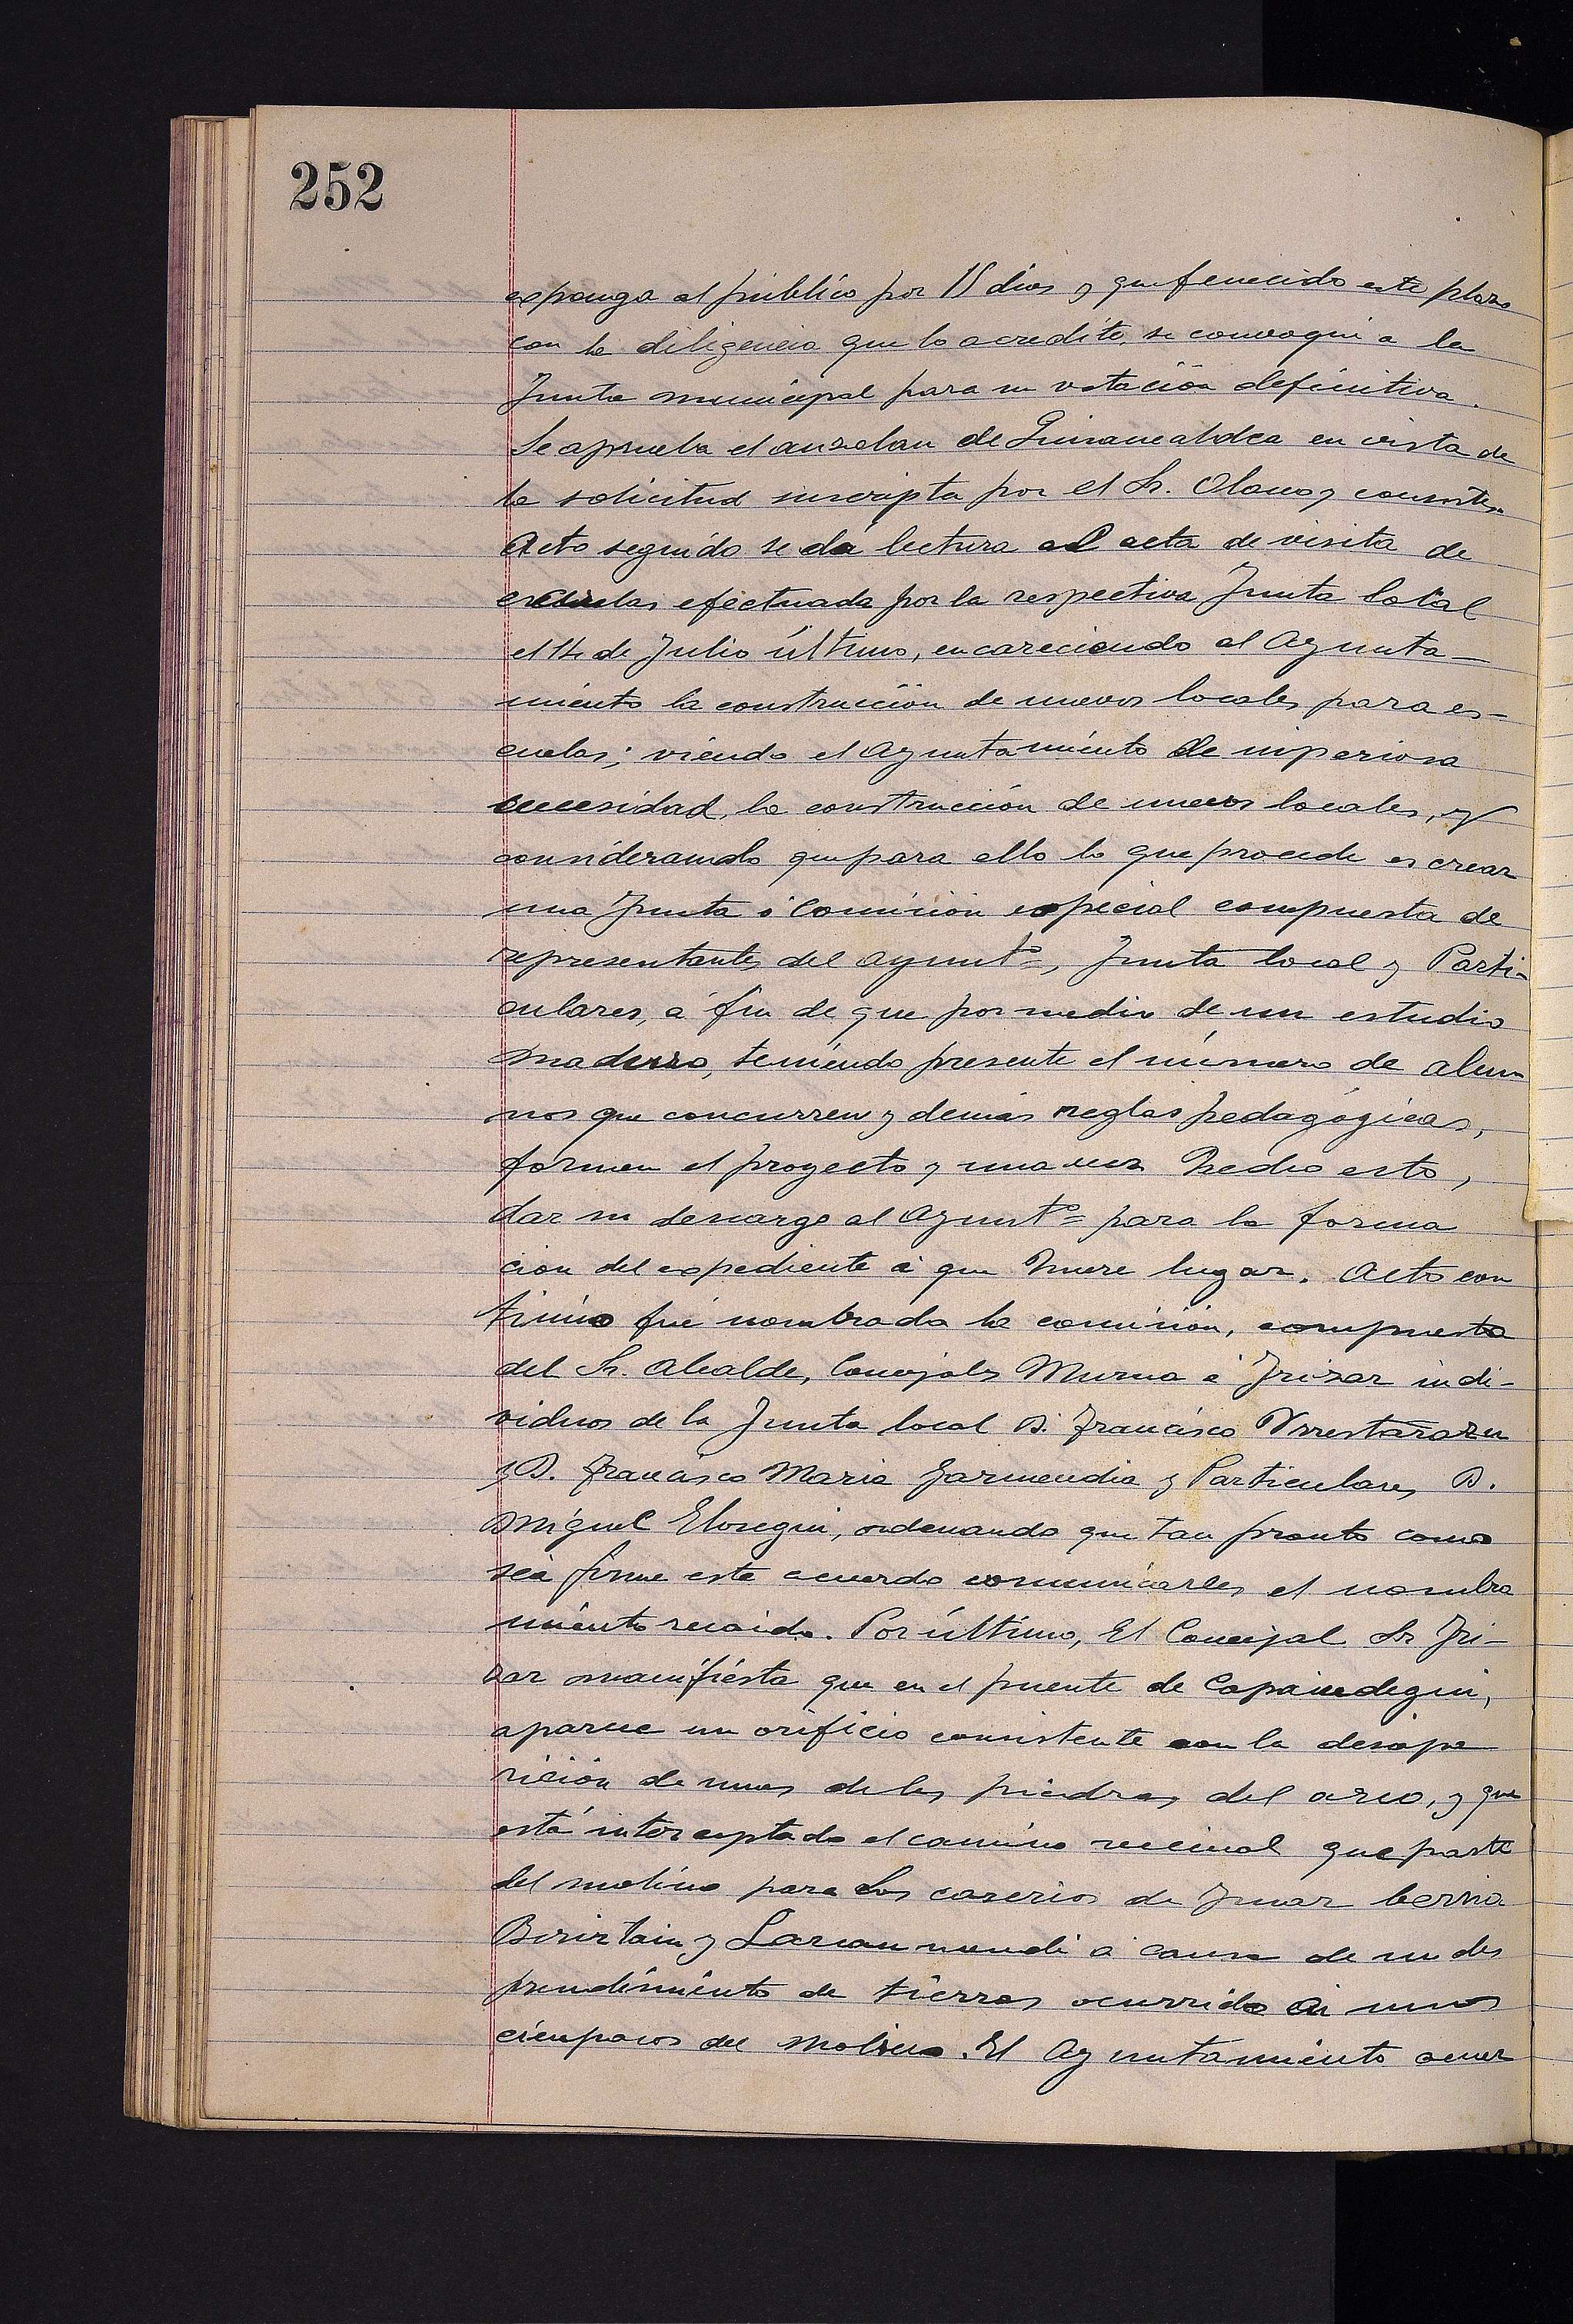 252
exponga al público por 15 dias y que fenecido este plazo
con la diligencia que lo acredite, se convoque a la
Junta municipal para su votación definitiva.
Se aprueba el auzolan de en vista de
la solicitud suscripta por el Sr. Olano y consortes.
Acto seguido se da lectura al acta de visita de
escuelas efectuada por la respectiva Junta local
el 14 de Julio último, encareciendo al Ayunta-
miento la construcción de nuevos locales para es-
cuelas; viendo el Ayuntamiento de imperiosa
necesidad, la construcción de nuevos locales, y
considerando que para ello lo que procede es crear
una Junta ó Comisión especial compuesta de
representantes del Ayuntº, Junta local y Parti-
culares, á fin de que por medio de un estudio
maduro, teniendo presente el número de alum
nos que concurren y demás reglas pedagógicas,
formen el proyecto y una vez hecho esto,
dar su descargo al Ayuntº para la forma
ción del expediente á que hubiere lugar. Acto con
tinuo fué nombrada la comisión, compuesta
del Sr. Alcalde, Concejales Murua é Irizar indi-
viduos de la Junta local D. Francisco Urrestarazu
y D. Francisco Maria Garmendia y Particulares D.
Miguel Elosegui, ordenando que tan pronto como
sea firme este acuerdo comunicarles el nombra
miento recaido. Por último, El Concejal Sr Iri-
zar manifiesta que en el puente de
aparece un orificio consistente con la desapa
rición de unas de las piedras del arco, y que
está interceptado el camino vecinal que parte
del molino para los caserios de
y á causa de un des
prendimiento de tierras ocurrido á unos
cien pasos del Molino. El Ayuntamiento acuer